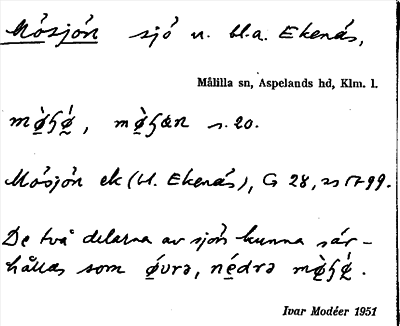 Mösjön sjö n. bl.a. Ekenäs,
Målilla sn, Aspelands hd, Klm. l.
s. 20.
Mösjön ek (bl. Ekenäs), G 28,
De två delarna av sjön kunna sär-
hållas som ø̀vrə, nèdrə
Ivar Modéer 1951